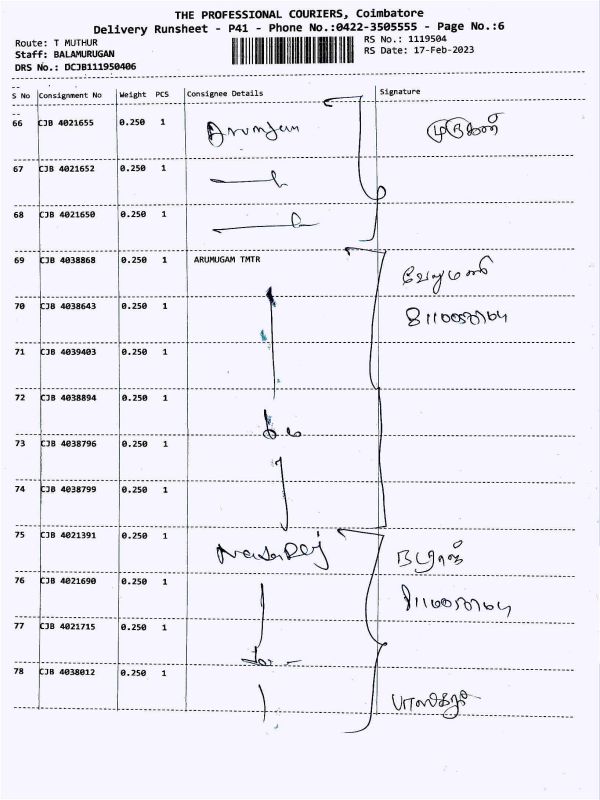 THE PROFESSIONAL COURIERS, Coimbatore
Delivery Runsheet - P41 - Phone No.:0422-3505555 - Page No.:6
Route: T MUTHUR
RS No.: 1119504
Staff: BALAMURUGAN
RS Date: 17-Feb-2023
DRS No.: DCJB111950406
S No Consignment No Weight PCS Consignee Details Signature
66 CJB 4021655 0.250 1 முருகன்
67 CJB 4021652 0.250 1
68 CJB 4021650 0.250 1
69 CJB 4038868 0.250 1 ARUMUGAM TMTR
70 CJB 4038643 0.250 1
71 CJB 4039403 0.250 1
72 CJB 4038894 0.250 1
73 CJB 4038796 0.250 1
74 CJB 4038799 0.250 1
75 CJB 4021391 0.250 1
76 CJB 4021690 0.250 1
77 CJB 4021715 0.250 1
78 CJB 4038012 0.250 1